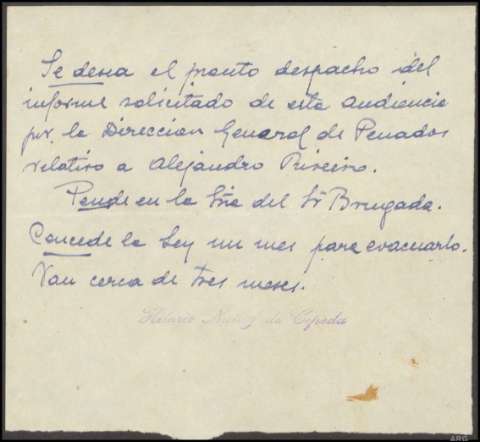 Se desea el pronto despacho del
informe solicitado de esta Audiencia
por la Direccion General de Penados
relativo a Alejandro Riveiro.
Pende en la Sría del Sr Brugada.
Concede la Ley un mes para evacuarlo.
Van cerca de tres meses.
Hilario Nuñez de Cepeda
ARG